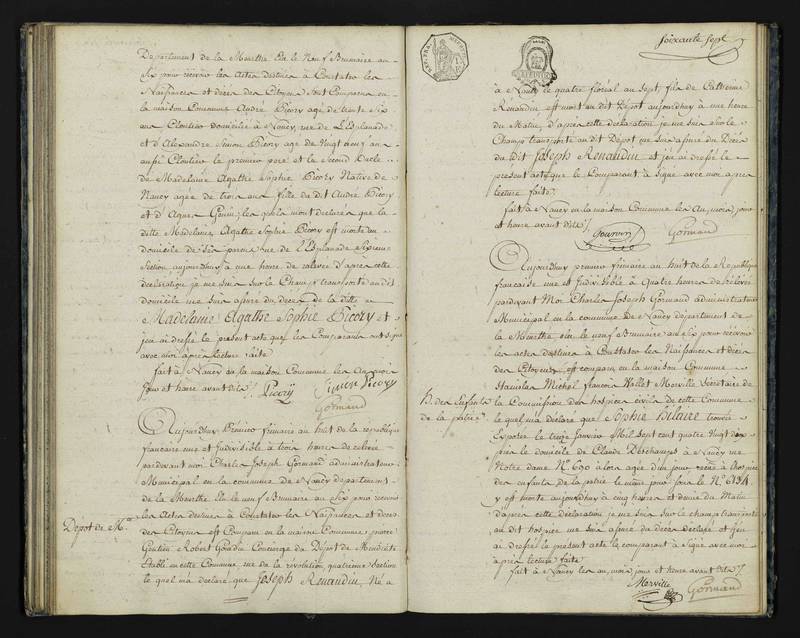 Departement de la Meurthe Elu le Neuf Brumaire an
Six pour recevoir les Actes destinés à Constater les
Naissances et décès des Citoyens Sont Comparus en
la maison Commune André Picory agé de trente Six
ans Cloutier domicilié à Nancy, rue de L'Esplanade
et d'Alexandre Simon Picory agé de Vingt deux ans
aussi Cloutier le premier pere et le Second Oncle
de Madelaine Agathe Sophie Picory Native de
Nancy agée de trois ans fille du dit André Picory
et d'Agnes lesquels m'ont declaré que la
ditte Madelaine Agathe Sophie Picory est morte au
domicile de ses parens rue de L'Esplanade Sixieme
Section aujourdhuy à une heure de relevée d'après cette
declaration je me suis Sur le Champ transporté au dit
domicile me suis assuré du décès de la ditte
Madelaine Agathe Sophie Picory et
j'en ai dressé le présent acte que les Comparants ont signé
avec moi après lecture faite
fait à Nancy en la maison Commune les An, mois
jour et heure avant dits Picory Simon Picory
Gormand
Aujourdhuy Premier frimaire an huit de la republique
francaise une et Indivisible à trois heures de relevée
pardevant moi Charles Joseph Gormand administrateur
Municipal en la commune de Nancy departement
de la Meurthe Elu le neuf Brumaire an Six pour recevoir
les Actes destinés à Constater les Naissances et décès
des Citoyens est Comparu en la maison Commune
Robert Concierge du Depot de Mendicité
Dépot de M.té
Etabli en cette Commune rue de la revolution, quatrieme Section
le quel m'a declaré que Joseph Renaudin, Né à
soixante sept
à Nancy le quatre floréal an sept, fils de Catherine
Renaudin est mort au dit Dépot aujourdhuy à une heure
du Matin, d'après cette declaration je me suis Sur le
Champ transporté au dit Dépot me suis assuré du Décès
du dit Joseph Renaudin et j'en ai dressé le
présent acte que le Comparant à Signé avec moi après
lecture faite.
fait à Nancy en la maison Commune les An, mois, jour
et heure avant dits
Gormand
Aujourdhuy premier frimaire an huit de la Republique
francaise une et Indivisible à Quatre heures de relevée
pardevant Moi Charles Joseph Gormand administrateur
Municipal en la commune de Nancy département de
la Meurthe élu le neuf Brumaire an Six pour recevoir
les actes destinés à Constater les Naissances et décès
des Citoyens, est comparu en la maison Commune
Stanislas Michel François Vallet Merville Secrétaire de
H. des Enfants
de la patrie
la Commission des hospices civils de cette Commune
le quel m'a déclaré que Sophie Hilaire trouvée
Exposée le treize janvier Mil sept cent quatre Vingt dix
près le domicile de Claude Deschamps à Nancy rue
Notre dame N.° 690 alors agée d'un jour, reçue à l'hospice
des enfants de la patrie le même jour sous le N.° 6134
y est morte aujourdhuy à cinq heures et demie du Matin
d'après cette déclaration je me suis sur le champ transporté
au dit hospice me suis assuré du décès déclaré et j'en
ai dressé le présent acte le comparant a Signé avec moi
après lecture faite
fait à Nancy les an, mois, jour et heure avant dits
Merville Gormand